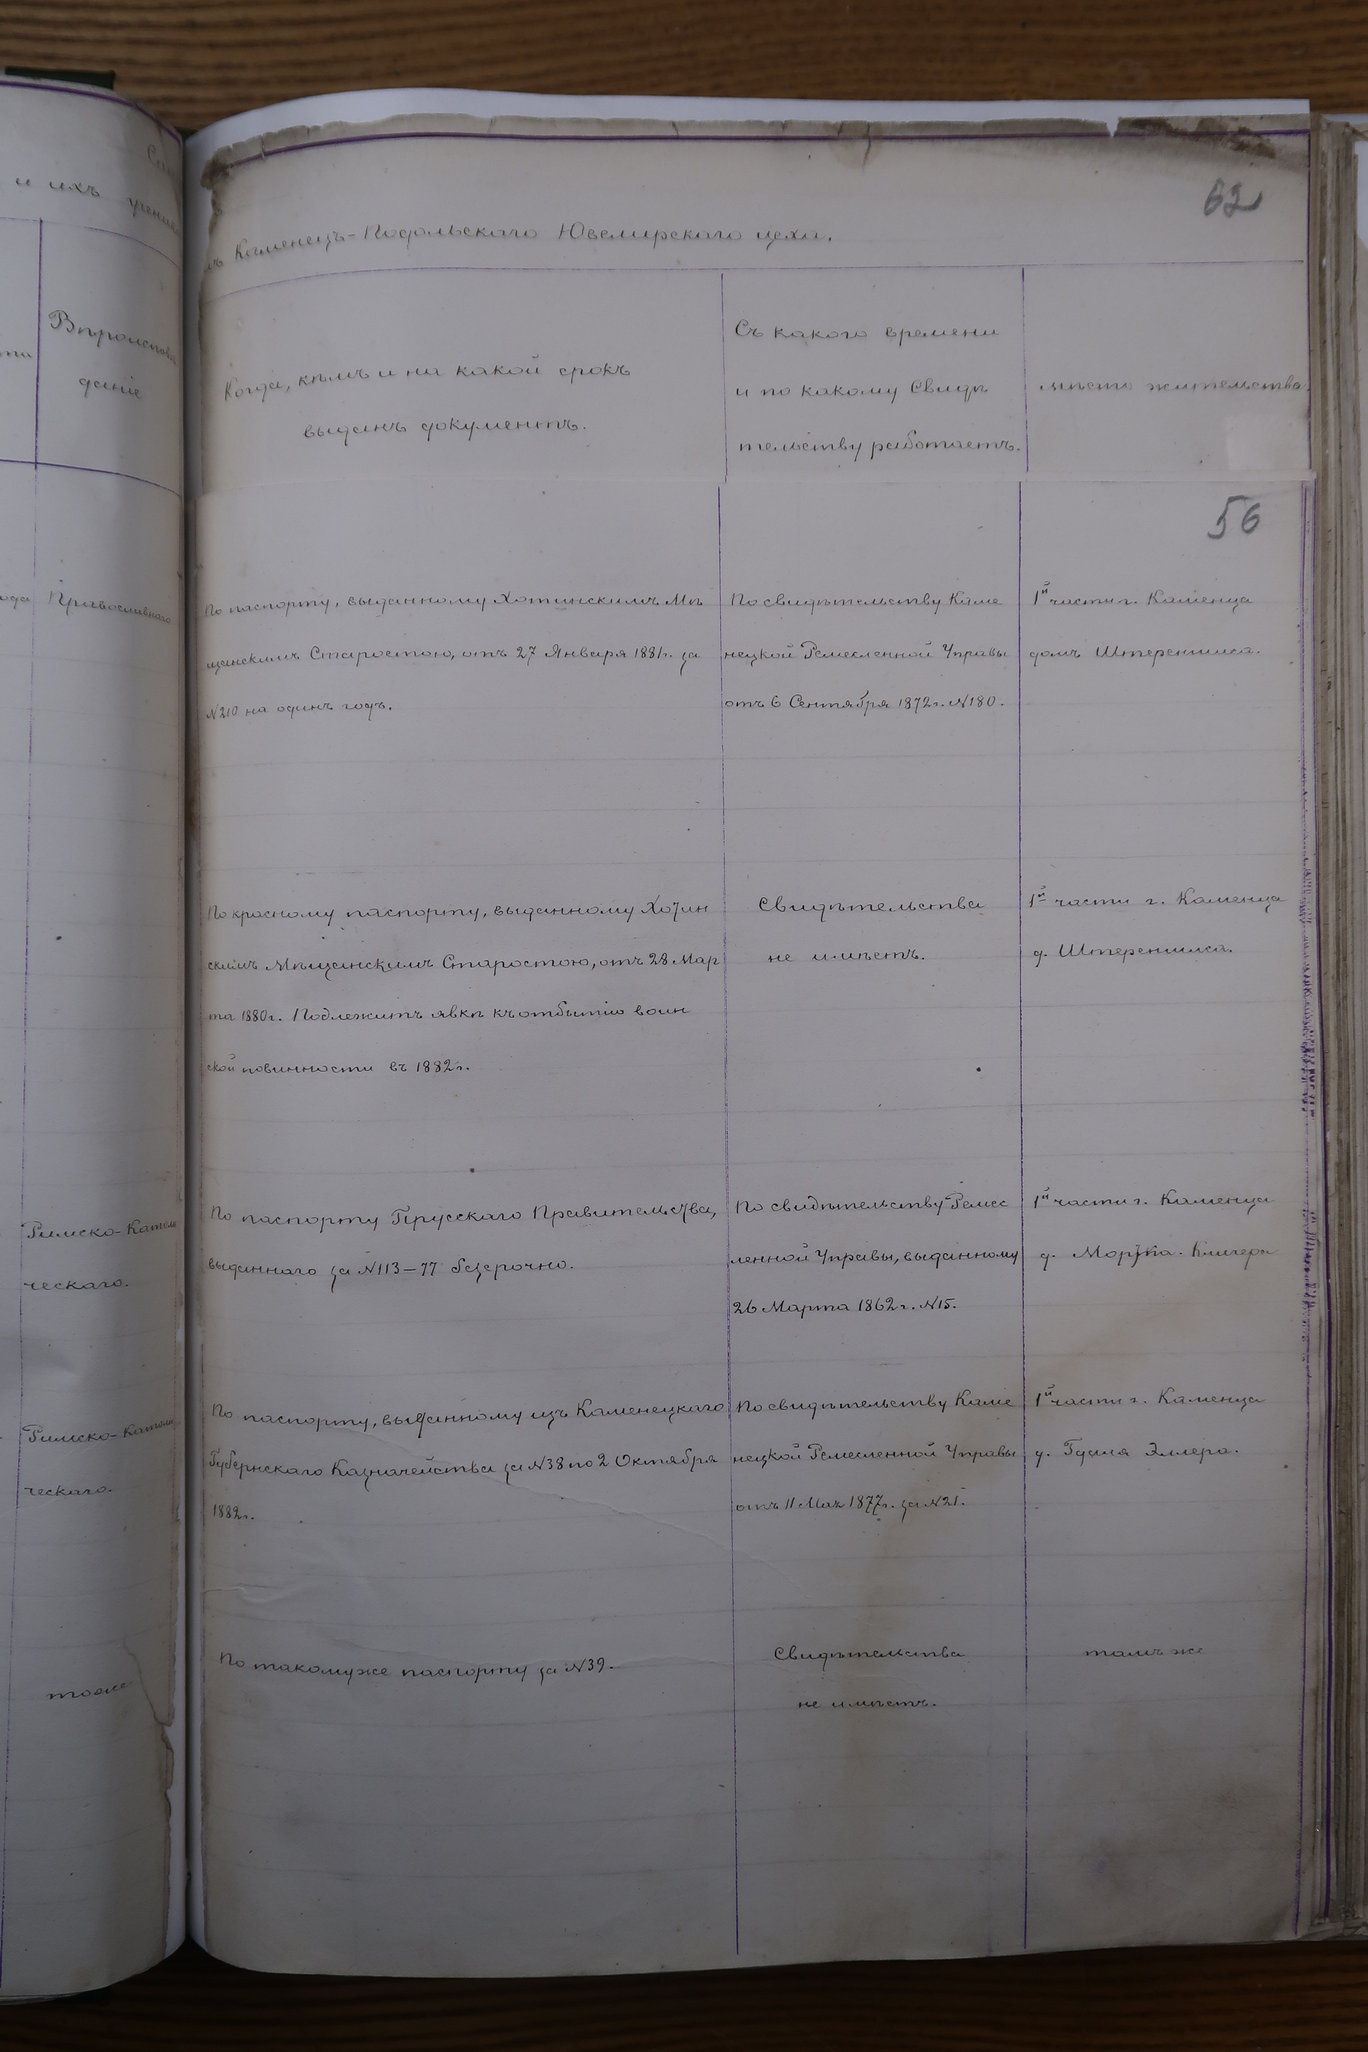 и ихъ
Вѣроиспове
даніе
Православнаго
Римско-Католи
ческаго.
Римско-Католи
ческаго.
тоже
62
Каменецъ-Подольскаго Ювелирскаго цеха.
Когда, кѣмъ и на какой срокъ
выданъ документъ.
Съ какого времени
и по какому Свидѣ
тельству работаетъ.
мѣсто жительства.
56
По паспорту, выданному Хотинскимъ Мѣ
щанскимъ Старостою, отъ 27 Января 1881г. за
№210 на одинъ годъ.
По свидѣтельству Каме
нецкой Ремесленной Управы
отъ 6 Сентября 1872г. №180.
1й части г. Каменца
домъ Штереншиса.
По красному паспорту, выданному Хотин
скимъ Мѣщанскимъ Старостою, отъ 28 Мар
та 1880г. Подлежитъ явкѣ къ отбытію воин
ской повинности въ 1882г.
Свидѣтельства
не имѣетъ.
1й части г. Каменца
д. Штереншиса.
По паспорту Прусскаго Правительства,
выданнаго за №113–77 безсрочно.
По свидѣтельству Ремес
ленной Управы, выданному
26 Марта 1862г. №15.
1й части г. Каменца
д.
По паспорту, выданному изъ Каменецкаго
Губернскаго Казначейства за №38 по 2 Октября
1882г.
По свидѣтельству Каме
нецкой Ремесленной Управы
отъ 11 Мая 1877г. за №21.
1й части г. Каменца
д. Эллера.
По такому же паспорту за №39.
Свидѣтельства
не имѣетъ.
тамъ же